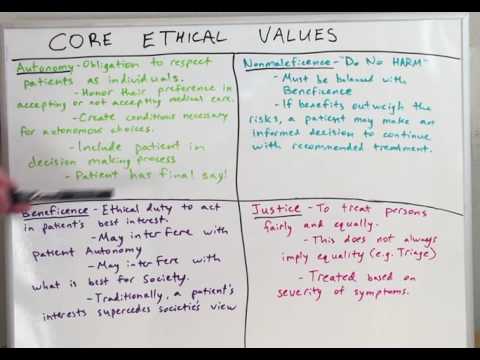 CORE ETHICAL VALUES
Autonomy - Obligation to respect
patients as individuals.
- Honor their preference in
accepting or not accepting medical care.
- Create conditions necessary
for autonomous choices.
- Include patient in
decision making process
- Patient has final say!
Nonmaleficence - "Do No HARM"
- Must be balanced with
Beneficence
- If benefits outweigh the
risks, a patient may make an
informed decision to continue
with recommended treatment.
Beneficence - Ethical duty to act
in patient's best interest.
- May interfere with
patient Autonomy
- May interfere with
what is best for Society.
- Traditionally, a patient's
interests supercedes societie's view
Justice - To treat persons
fairly and equally.
- This does not always
imply equality (e.g. Triage)
- Treated based on
severity of symptoms.